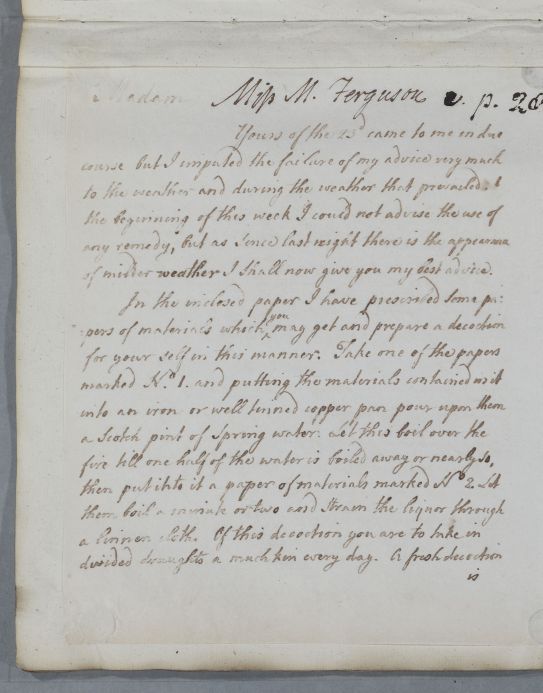 Madam Miss M. Ferguson v. p. 28
Yours of the 23d came to me in due
course but I imputed the failure of my advice very much
to the weather and during the weather that prevailed
the beginning of this week I could not advise the use of
any remedy, but as since last night there is the appearance
of milder weather I shall now give you my best advice.
In the inclosed paper I have prescribed some pa-
pers of materials which you may get and prepare a decoction
for your self in this manner. Take one of the papers
marked No 1. and putting the materials contained in it
into an iron or well tinned copper pan pour upon them
a Scotch pint of Spring water. Let this boil over the
fire till one half of the water is boiled away or nearly so,
then put into it a paper of materials marked No 2. Let
them boil a minute or two and strain the liquor through
a linnen cloth. Of this decoction you are to take in
divided draughts a mutchkin every day. A fresh decoction
is